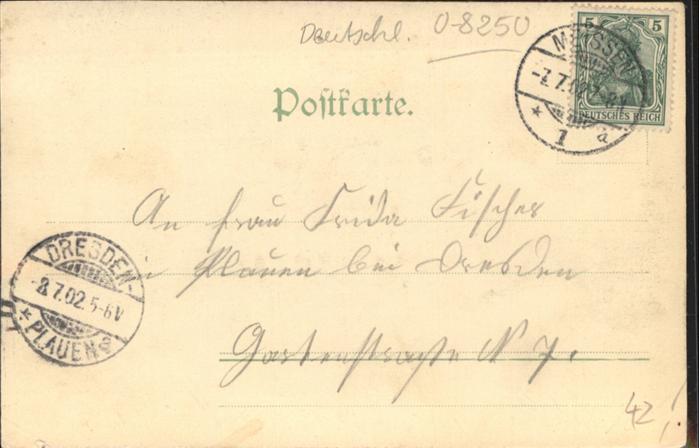 Deutschl. 0-8250
5 5
DEUTSCHES REICH
MEISSEN
-7.7.02.7-8V.
* 1 a
Postkarte.
An Frau Frida Fischer
in Plauen bei Dresden
Gartenstraße N 7.
DRESDEN-
-8.7.02.5-6V
* PLAUEN a
42,